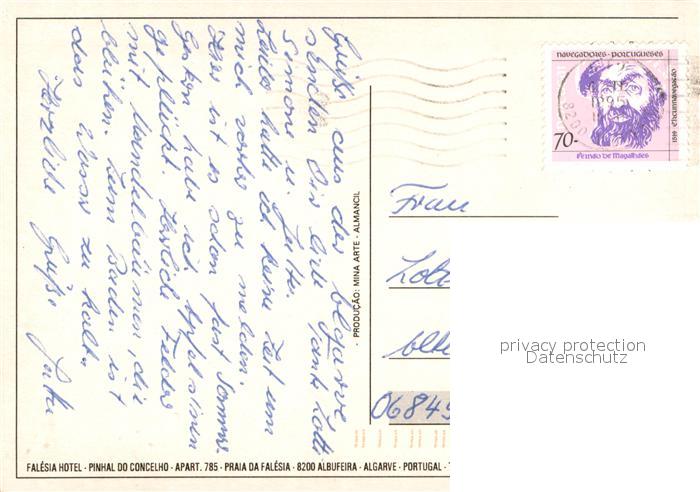 Grüße aus der Algarve
senden Dir liebe Tante Lotti
Simone u. Jutta.
Leider hatte ich keine Zeit um
mich vorher zu melden.
Hier ist es schon fast Sommer.
Gestern habe ich Apfelsinen
gepflückt. Herrliche Felder
mit Mandelbäumen, die
blühen. Zum Baden ist
das Wasser zu kalt.
Herzliche Grüße Jutta
PRODUÇÃO: MINA ARTE - ALMANCIL
NAVEGADORES · PORTUGUESES
1519 Circumnavegação
70-
Fernão de Magalhães
8200
Frau
06845
privacy protection
Datenschutz
FALÉSIA HOTEL · PINHAL DO CONCELHO · APART. 785 · PRAIA DA FALÉSIA · 8200 ALBUFEIRA · ALGARVE · PORTUGAL ·